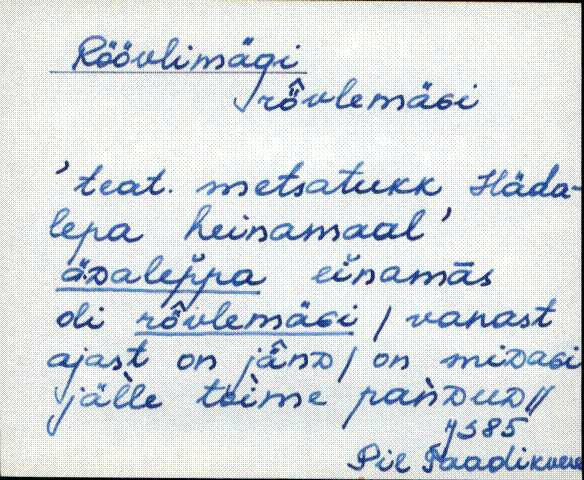 Röövlimägi
rö̂vlemäɢi
'teat. metsatukk Häda-
lepa heinamaal'
äᴅalep̆pa eĭnamās
oli rö̂vlemäɢi / vanast
ajast on jä̂nᴅ / on miᴅaɢi
jälle toime pan̆ᴅuᴅ //
Pil